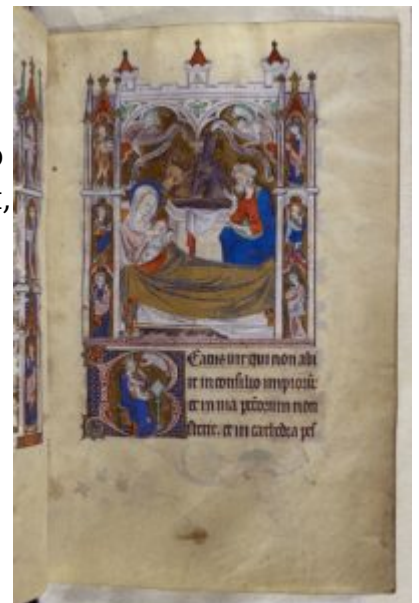 Beatus uir qui non abi
it in consilio impiorū
et in uia pctorum non
stetit. et in cathedra pes